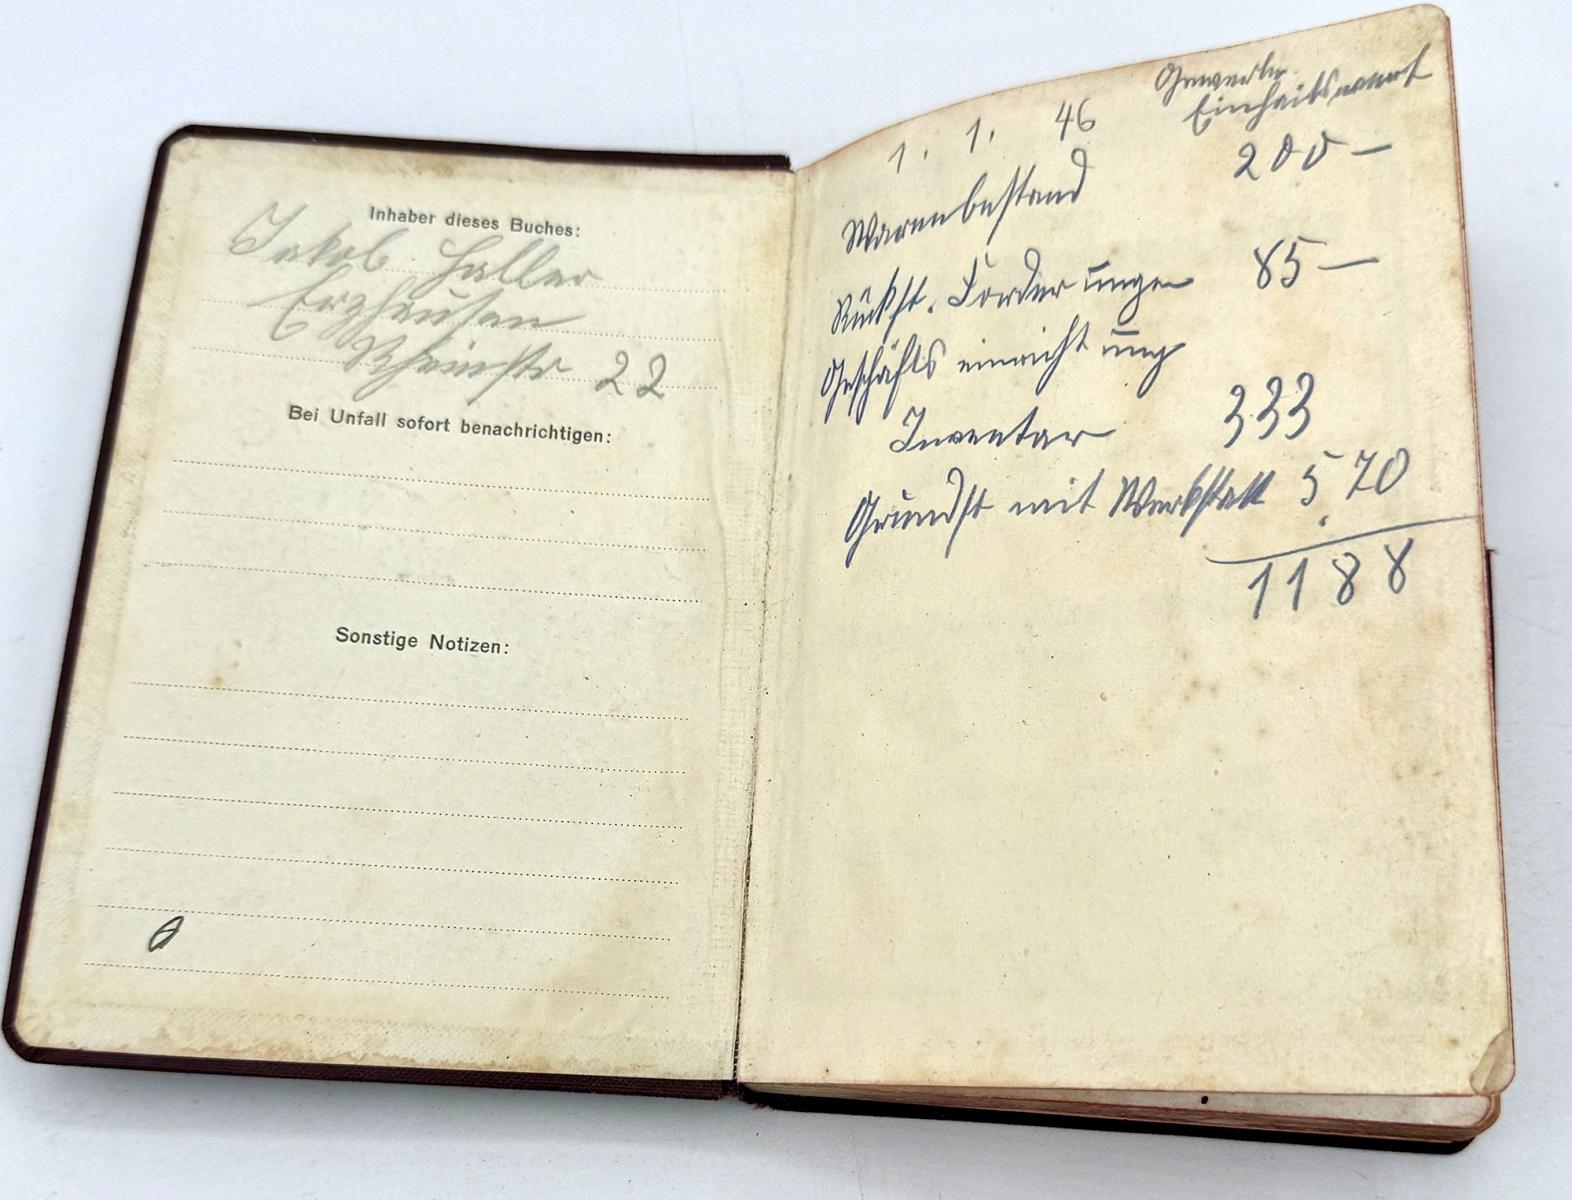 Inhaber dieses Buches:
Jakob Haller
Erzhausen
Rheinstr 22
Bei Unfall sofort benachrichtigen:
Sonstige Notizen:
Gewerbe
1. 1. 46 Einheitswert
Warenbestand 200 —
Rückst. Forderungen 85 —
Geschäftseinrichtung
Inventar 333
Grundst mit Werkstatt 570
1188